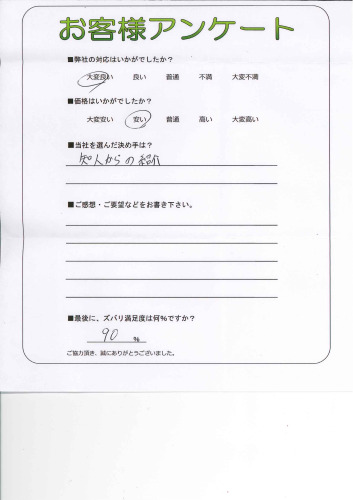 お客様アンケート
■弊社の対応はいかがでしたか？
大変良い 良い 普通 不満 大変不満
■価格はいかがでしたか？
大変安い 安い 普通 高い 大変高い
■当社を選んだ決め手は？
知人からの紹介
■ご感想・ご要望などをお書き下さい。
■最後に、ズバリ満足度は何％ですか？
90 ％
ご協力頂き、誠にありがとうございました。